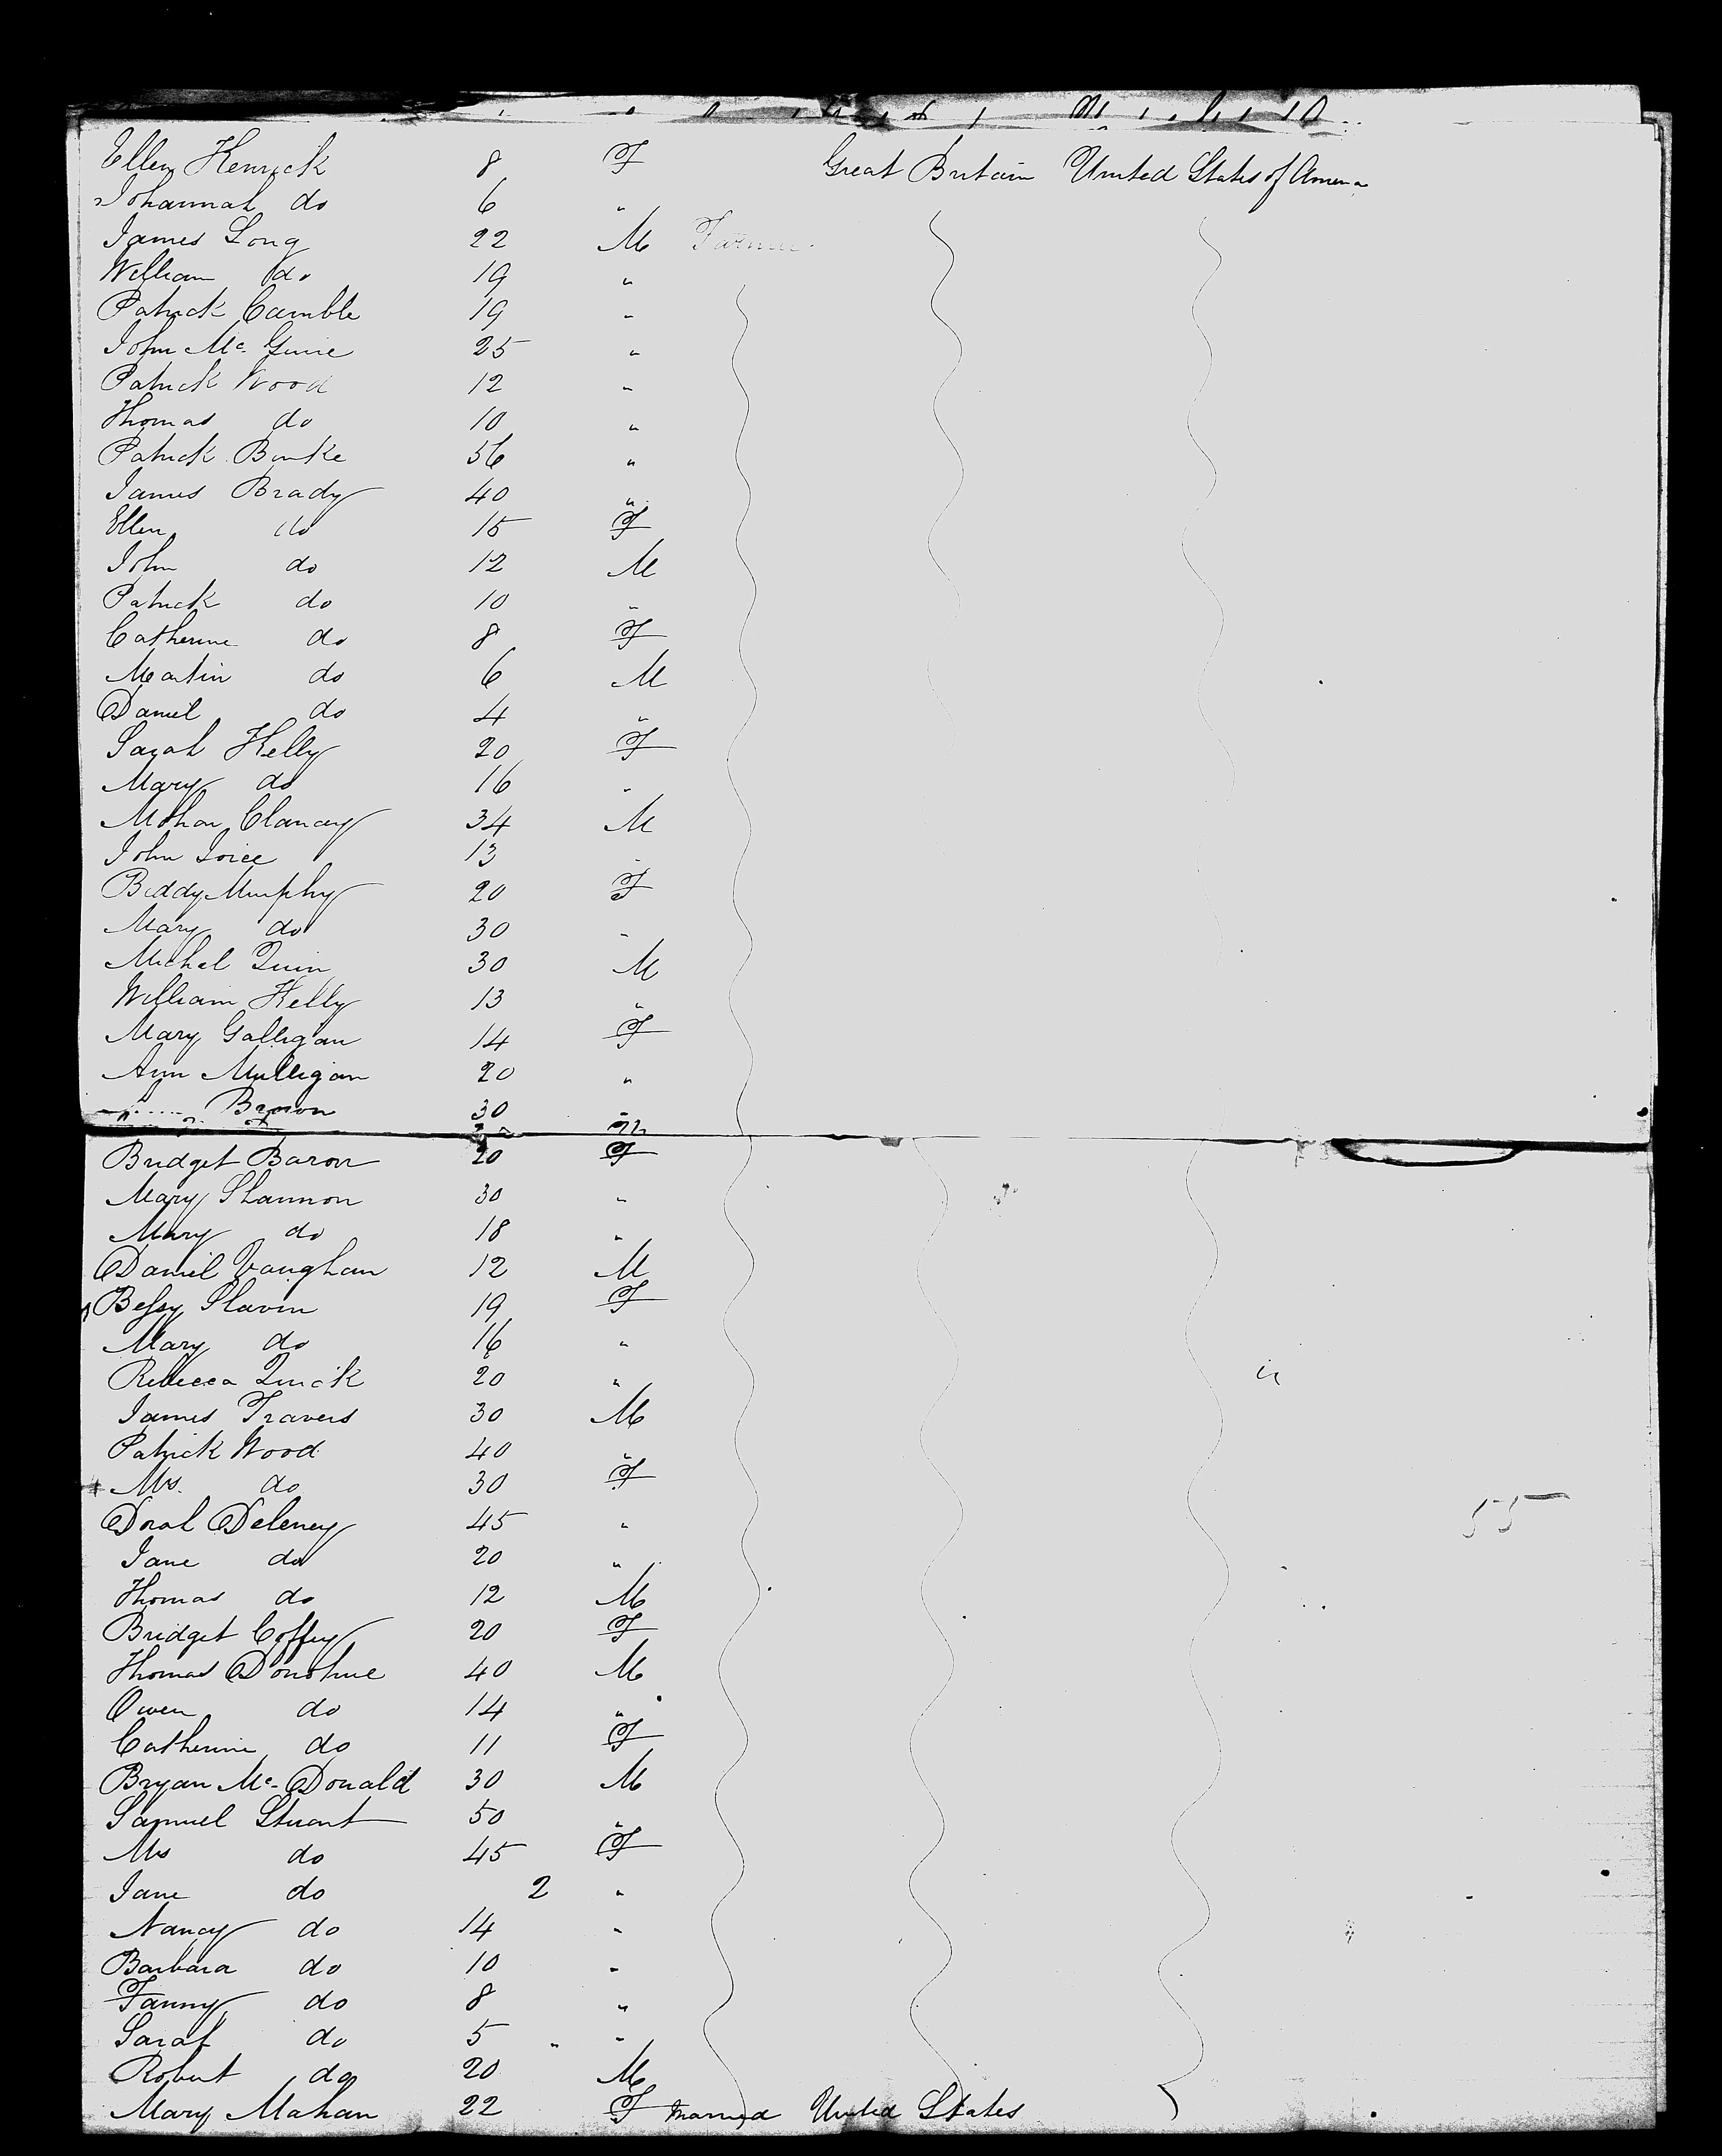 Ellen Henrick 8 F Great Britain United States of America
Johannah do 6 "
James Long 22 M Farmer
William do 19 "
Patrick Camble 19 "
John Mc Guire 25 "
Patrick Wood 12 "
Thomas do 10 "
Patrick Burke 56 "
James Brady 40 "
Ellen do 15 F
John do 12 M
Patrick do 10 "
Catherine do 8 F
Martin do 6 M
Daniel do 4 "
Sarah Kelly 20 F
Mary do 16 "
Clancey 34 M
John Joice 13 "
Biddy Murphy 20 F
Mary do 30 "
Michel Quin 30 M
William Kelly 13 "
Mary Galligan 14 F
Ann Mulligan 20 "
30 "
Bridget Baron 20 F
Mary Shannon 30 "
Mary do 18 "
Daniel Vaughan 12 M
Bessy Slavin 19 F
Mary do 16 "
Rebecca Quick 20 "
James Travers 30 M
Patrick Wood 40 "
Mrs. do 30 F
Deleney 45 "
Jane do 20 "
Thomas do 12 M
Bridget Coffey 20 F
Thomas Donohue 40 M
Owen do 14 "
Catherine do 11 F
Bryan Mc. Donald 30 M
Samuel Stuart 50 "
Mrs do 45 F
Jane do 2 "
Nancy do 14 "
Barbara do 10 "
Fanny do 8 "
Sarah do 5 " "
Robert do 20 M
Mary Mahan 22 F Married United States
55